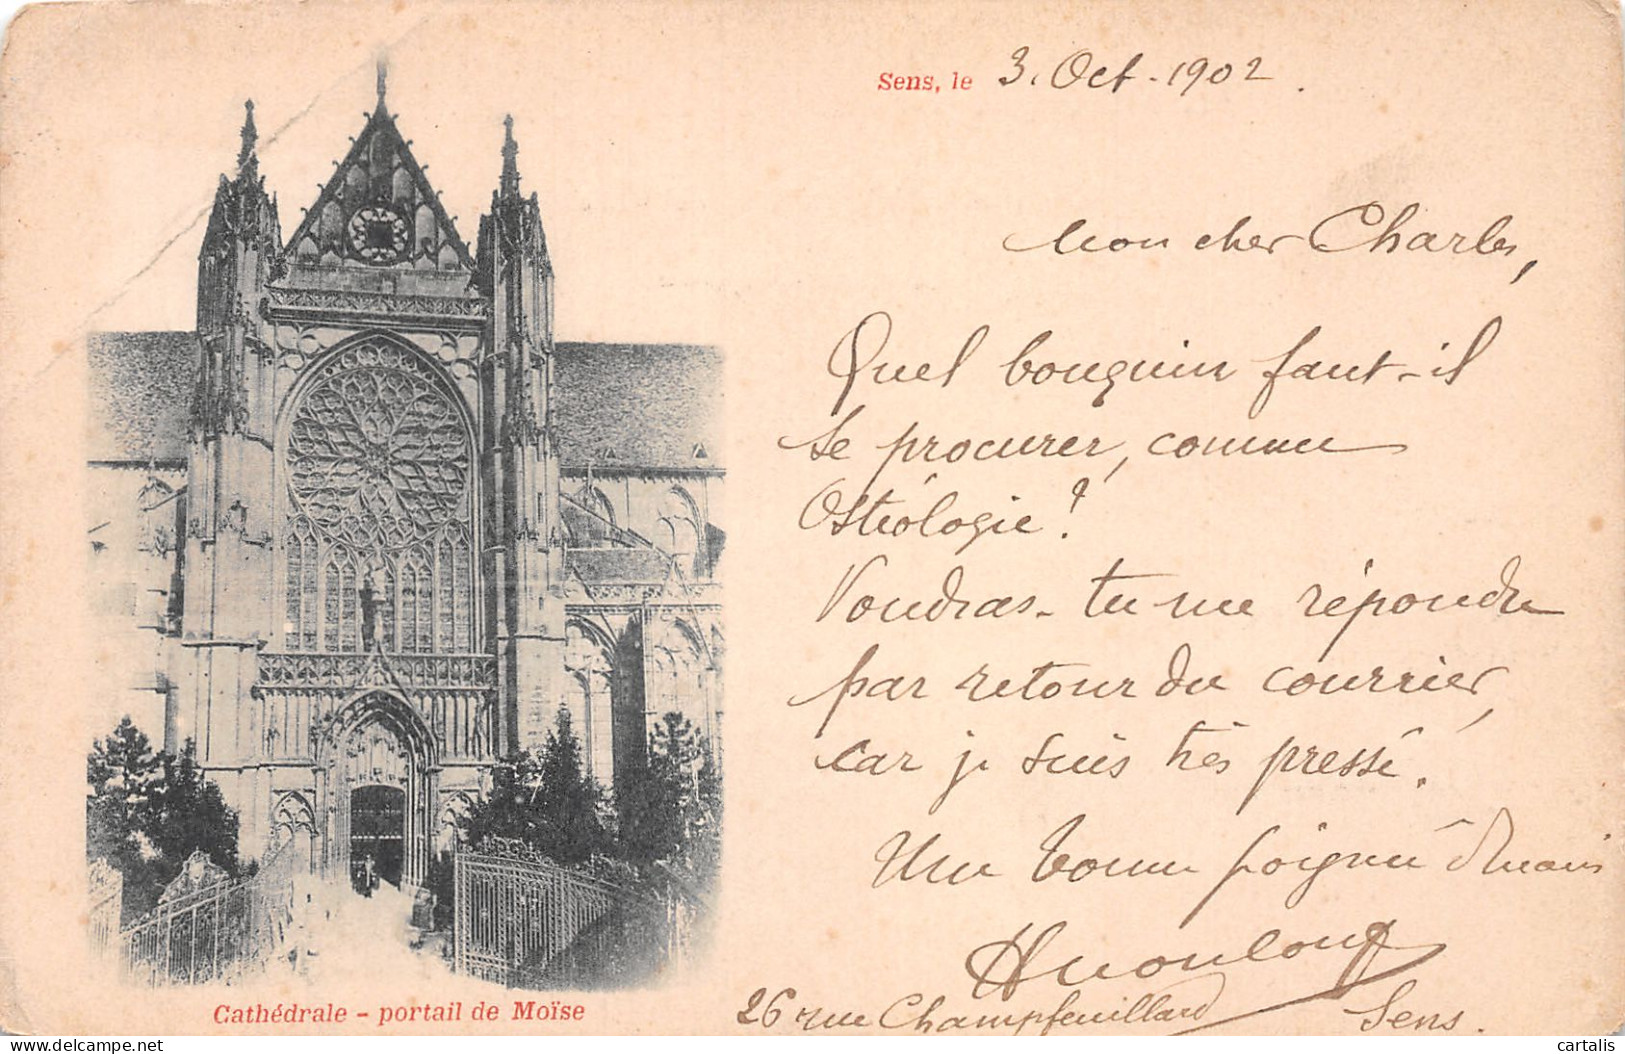 Sens, le 3. Oct. 1902.
Mon cher Charles,
Quel bouquin faut-il
se procurer, comme
Ostéologie?
Voudras-tu me répondre
par retour du courrier,
car je suis très pressé.
Une bonne poignée d'main
26 rue Champfeuillard Sens.
Cathédrale - portail de Moïse
cartalis
delcampe.net